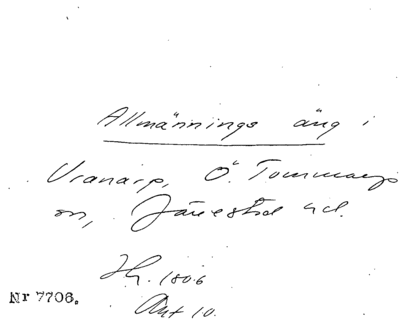 Allmännings äng i
Vranarp, Ö. Tommarp
sn, Järrestad hd.
Hg. 1806
Akt 10.
Nr 7706.